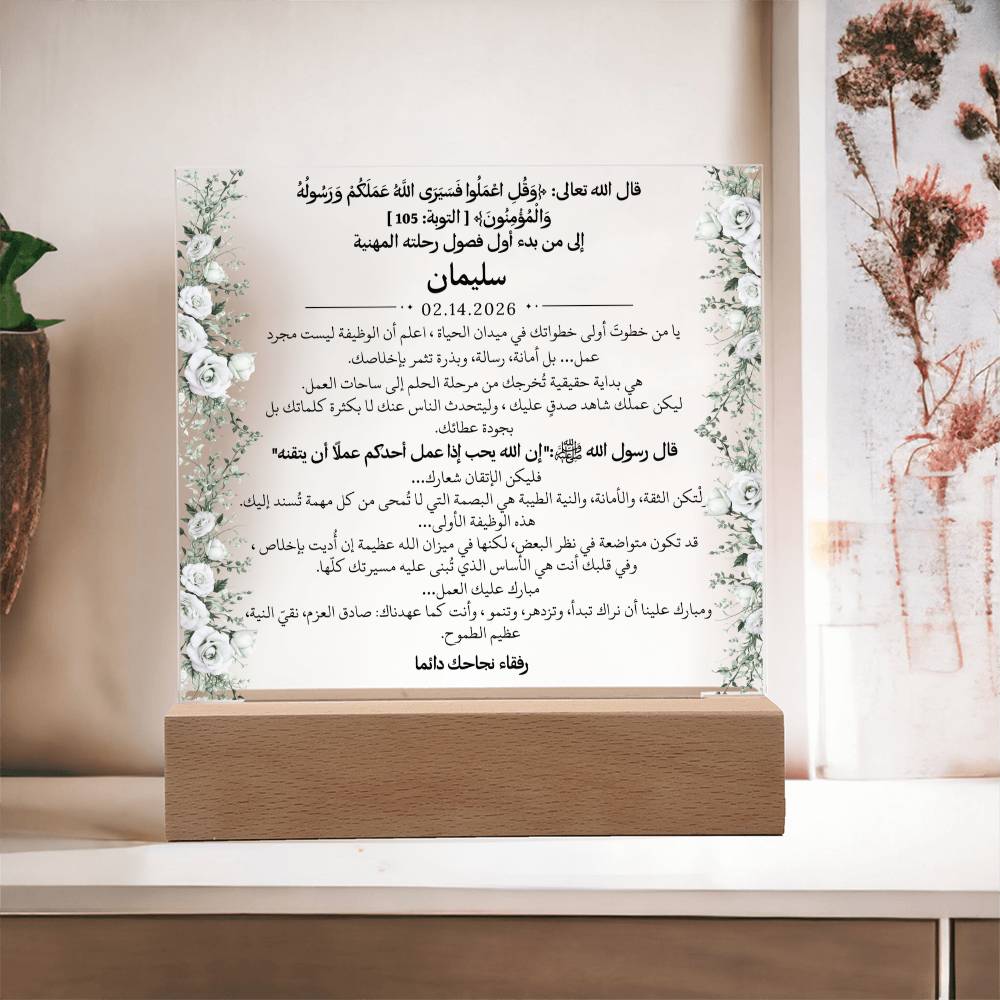 قال الله تعالى: ﴿وَقُلِ اعْمَلُوا فَسَيَرَى اللَّهُ عَمَلَكُمْ وَرَسُولُهُ
وَالْمُؤْمِنُونَ﴾ [ التوبة: 105 ]
إلى من بدء أول فصول رحلته المهنية
سليمان
02.14.2026
يا من خطوتَ أولى خطواتك في ميدان الحياة ، اعلم أن الوظيفة ليست مجرد
عمل... بل أمانة، رسالة، وبذرة تثمر بإخلاصك.
هي بداية حقيقية تُخرجك من مرحلة الحلم إلى ساحات العمل.
ليكن عملك شاهد صدقٍ عليك ، وليتحدث الناس عنك لا بكثرة كلماتك بل
بجودة عطائك.
قال رسول الله ﷺ:"إن الله يحب إذا عمل أحدكم عملًا أن يتقنه"
فليكن الإتقان شعارك...
ولْتكن الثقة، والأمانة، والنية الطيبة هي البصمة التي لا تُمحى من كل مهمة تُسند إليك.
هذه الوظيفة الأولى...
قد تكون متواضعة في نظر البعض، لكنها في ميزان الله عظيمة إن أُديت بإخلاص ،
وفي قلبك أنت هي الأساس الذي تُبنى عليه مسيرتك كلّها.
مبارك عليك العمل...
ومبارك علينا أن نراك تبدأ، وتزدهر، وتنمو ، وأنت كما عهدناك: صادق العزم، نقيّ النية،
عظيم الطموح.
رفقاء نجاحك دائما